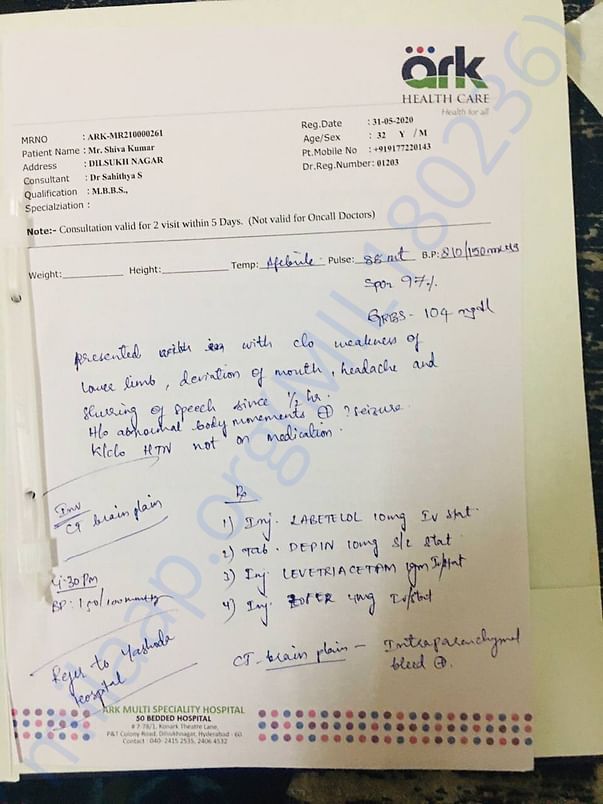 ark
HEALTH CARE
Health for all
MRNO : ARK-MR210000261
Patient Name : Mr. Shiva Kumar
Address : DILSUKH NAGAR
Consultant : Dr Sahithya S
Qualification : M.B.B.S.,
Specialziation :
Reg.Date : 31-05-2020
Age/Sex : 32 Y / M
Pt.Mobile No : +919177220143
Dr.Reg.Number: 01203
Note:- Consultation valid for 2 visit within 5 Days. (Not valid for Oncall Doctors)
Weight: Height: Temp: Afebrile Pulse: 88 B.P:
Spo2 97%
GRBS - 104 mg/dl
presented with c/o weakness of
lower limb, deviation of mouth, headache and
slurring of speech since 1/2 hr.
H/o abnormal body movements ⊕ ? seizure.
K/c/o HTN not on medication.
Inv
CT brain plain
4:30 Pm
BP: 150/100mmHg
Refer to Yashoda
Hospital
Rx
1) Inj. LABETELOL 10mg IV stat.
2) Tab. DEPIN 10mg S/L stat
3) Inj LEVETRIACETAM 1gm IV/stat
4) Inj ZOFER 4mg IV/stat
CT- brain plain - Intraparenchymal
bleed ⊕.
ARK MULTI SPECIALITY HOSPITAL
50 BEDDED HOSPITAL
# 7-78/1, Konark Theatre Lane,
P&T Colony Road, Dilsukhnagar, Hyderabad - 60.
Contact : 040- 2415 2535, 2406 4532
milaap.org(MIL180236)